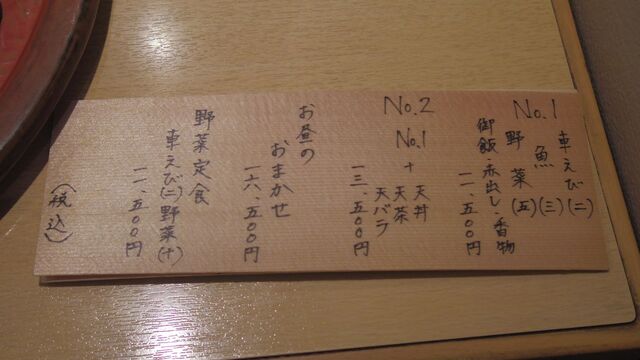 No.1
車えび(二)
魚(三)
野菜(五)
御飯・赤出し・香物
一一、五00円
No.2
No.1 + 天丼
天茶
天バラ
一三、五00円
お昼の
おまかせ
一六、五00円
野菜定食
車えび(二)野菜(十)
一一、五00円
(税込)